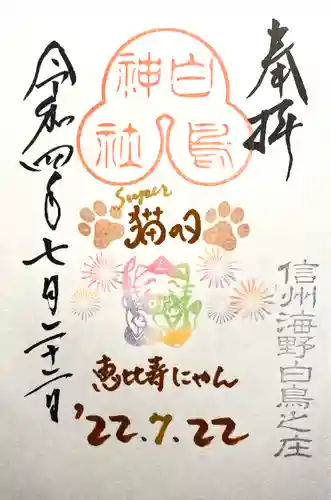 奉拝
白鳥神社
Super
猫の日
恵比寿にゃん
'22.7.22
信州海野白鳥之庄
令和四年七月二十二日